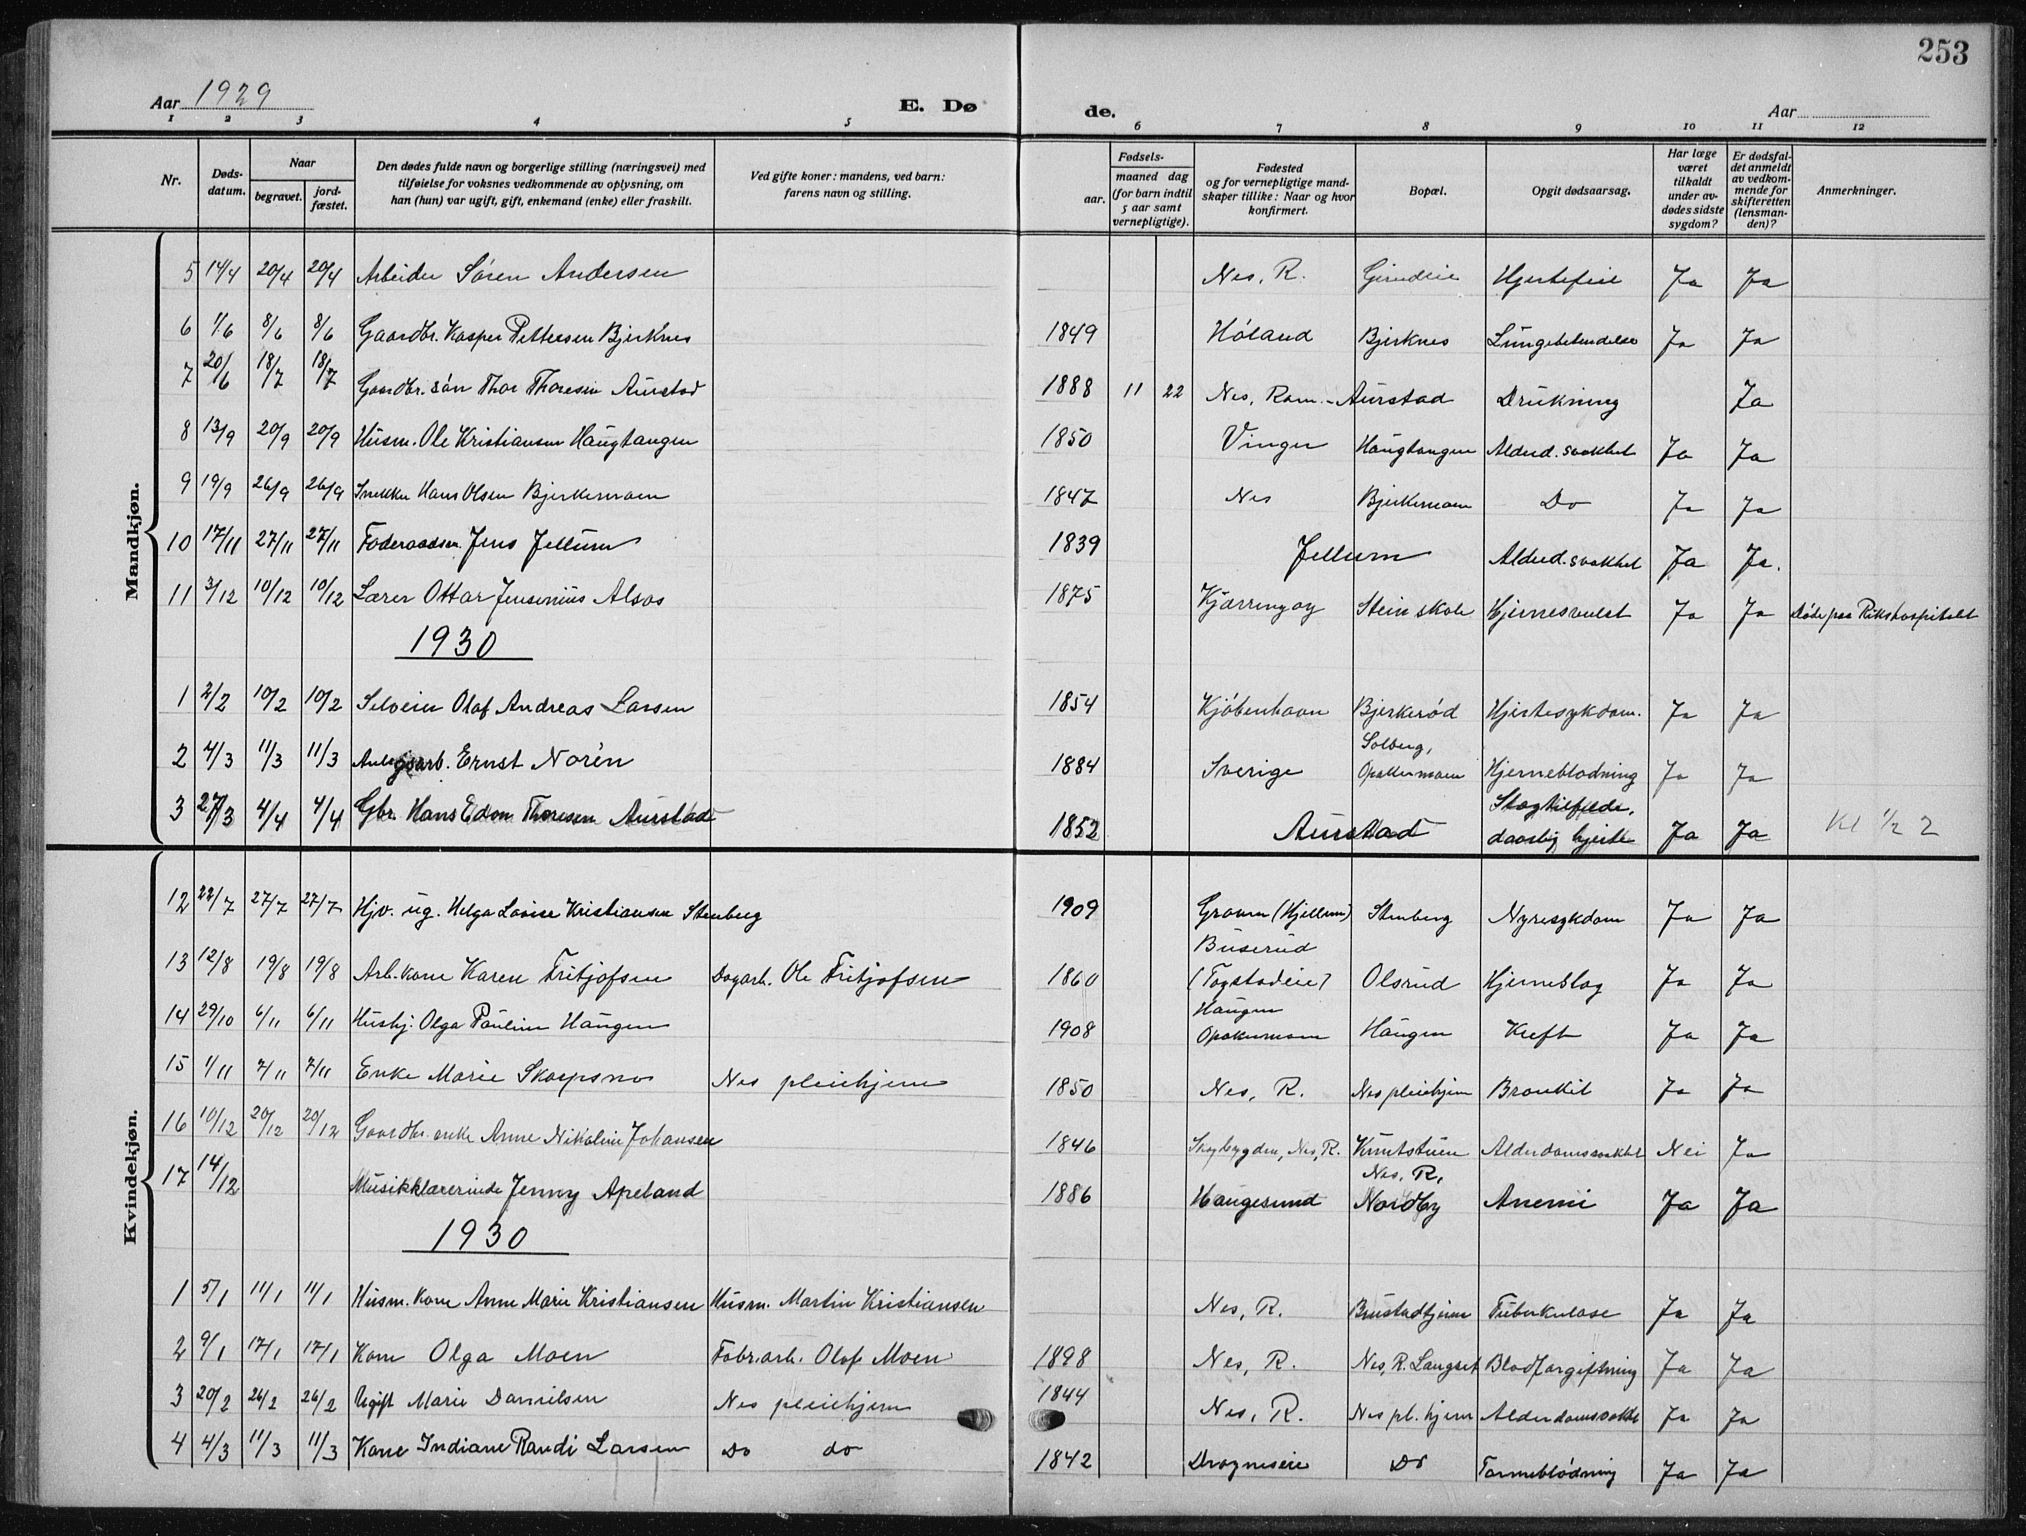 253
Aar 1929 E. Dø de. Aar
1 2 3 4 5 6 7 8 9 10 11 12
Nr.
Døds-
datum.
Naar
begravet.
jord-
fæstet.
Den dødes fulde navn og borgerlige stilling (næringsvei) med
tilføielse for voksnes vedkommende av oplysning, om
han (hun) var ugift, gift, enkemand (enke) eller fraskilt.
Ved gifte koner: mandens, ved barn:
farens navn og stilling.
Fødsels-
aar.
maaned dag
(for barn indtil
5 aar samt
vernepligtige).
Fødested
og for vernepligtige mand-
skaper tillike: Naar og hvor
konfirmert.
Bopæl.
Opgit dødsaarsag.
Har læge
været
tilkaldt
under av-
dødes sidste
sygdom?
Er dødsfal-
det anmeldt
av vedkom-
mende for
skifteretten
(lensman-
den)?
Anmerkninger.
Mandkjøn.
5 14/4 20/4 20/4 Arbeider Søren Andersen Nes, R. Hjertefeil Ja Ja
6 1/6 8/6 8/6 Gaardbr. Kasper Pettersen Bjerknes 1849 Høland Bjerknes Lungebetendelse Ja Ja
7 20/6 18/7 18/7 Gaardbr. søn Thor Thoresen Aurstad 1888 11 22 Nes, Rom. - Aurstad Drukning Ja
8 13/9 20/9 20/9 Husm. Ole Kristiansen Haugtangen 1850 Vinger Haugtangen Alderd. svakhet Ja Ja
9 19/9 26/9 26/9 Snekker Hans Olsen Bjerkemoen 1847 Nes Bjerkemoen Do Ja Ja
10 17/11 27/11 27/11 Føderaadsm. Jens Jellum 1839 Jellum Alderd. svakhet Ja Ja.
11 3/12 10/12 10/12 Lærer Ottar Jensenius Alsos 1875 Kjærringøy Stein skole Hjernesvulst Ja Ja Døde paa Rikshospitalet
1930
1 2/2 10/2 10/2 Seloeier Olaf Andreas Larsen 1854 Kjøbenhavn Bjerkerød Hjertesykdom. Ja Ja
2 4/3 11/3 11/3 Anlegsarb. Ernst Norén 1884 Sverige Solberg, Opakermoen Hjerneblødning Ja Ja
3 27/3 4/4 4/4 Gbr. Hans Edon Thoresen Aurstad 1852 Aurstad Slagtilfelde, daarlig hjerte Ja Ja Kl 1/2 2
Kvindekjøn.
12 22/7 27/7 27/7 Hjv. ug. Helga Lovise Kristiansen Stenberg 1909 Graven (Hjellum) Stenberg Nyresykdom Ja Ja
13 12/8 19/8 19/8 Arb. kone Karen Fritjofsen Dagarb. Ole Fritjofsen 1860 Buserud (Togstadeie) Olsrud Hjerneslag Ja Ja
14 29/10 6/11 6/11 Hushj. Olga Pauline Haugen 1908 Haugen Opakermoen Haugen Kreft Ja Ja
15 1/11 7/11 7/11 Enke Marie Skarpsno Nes pleiehjem 1850 Nes, R. Nes pleiehjem Bronkit Ja Ja
16 10/12 20/12 20/12 Gaardbr. enke Anne Nikoline Johansen 1846 Skogbygden, Nes, R. Knutstuen Alderdomssvakhet Nei Ja
17 14/12 Musikklærerinde Jenny Apeland 1886 Haugesund Nes, R. Nordby Anemi Ja Ja
1930
1 5/1 11/1 11/1 Husm. kone Anne Marie Kristiansen Husm. Martin Kristiansen Nes, R. Brustadhjem Tuberkulose Ja Ja
2 9/1 17/1 17/1 Kone Olga Moen Fabr. arb. Olaf Moen 1898 Nes, R. Nes, R. Langset Blodforgiftning Ja Ja
3 20/2 26/2 26/2 Ugift Marie Danielsen Nes pleiehjem 1844 Nes, R. Nes pl. hjem Alderdomssvakh Ja Ja
4 4/3 11/3 11/3 Kone Indiane Randi Larsen Do do 1842 Dragneseie Do Tarmeblødning Ja Ja